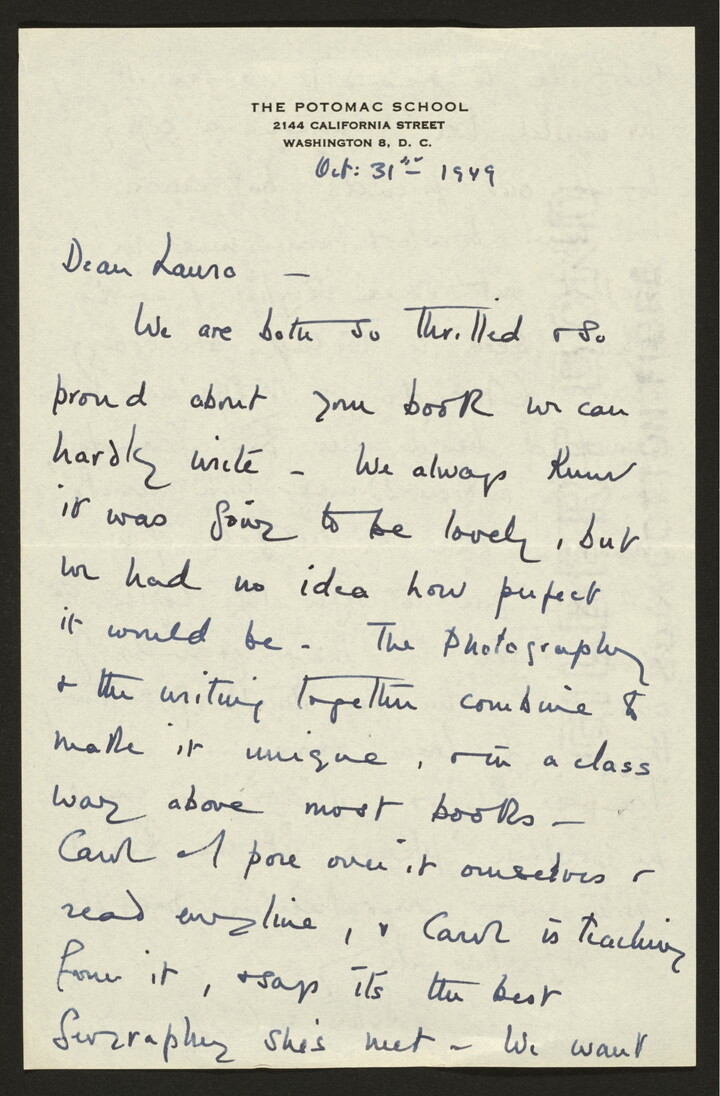 THE POTOMAC SCHOOL
2144 CALIFORNIA STREET
WASHINGTON 8, D. C.
Oct: 31st 1949
Dear Laura —
We are both so thrilled & so
proud about your book we can
hardly write – We always knew
it was going to be lovely, but
we had no idea how perfect
it would be – The Photography
& the writing together combine to
make it unique, & in a class
way above most books –
Carol & I pore over it ourselves &
read every line, & Carol is teaching
from it, & says its the best
Geography she's met – We want